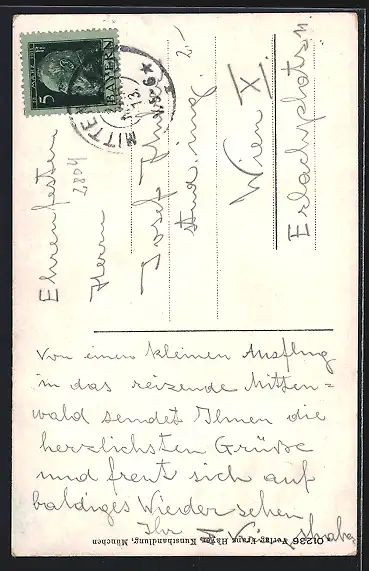 5 BAYERN
MITTEN
13.
Ehrenfesten
Herrn
Josef
stud. ing.
2.-
Wien X.
Erlachplatz 11
4087
Von einen kleinen Ausflug
in das reizende Mitten=
wald sendet Ihnen die
herzlichsten Grüße
und freut sich auf
baldiges Wieder sehen
Ihr
01236 Verlag Franz Kunsthandlung, München